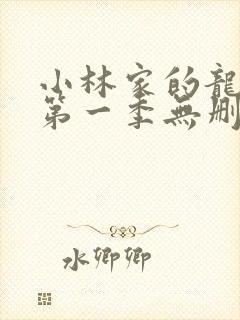 小林家的龍
第一季無刪
水卿卿